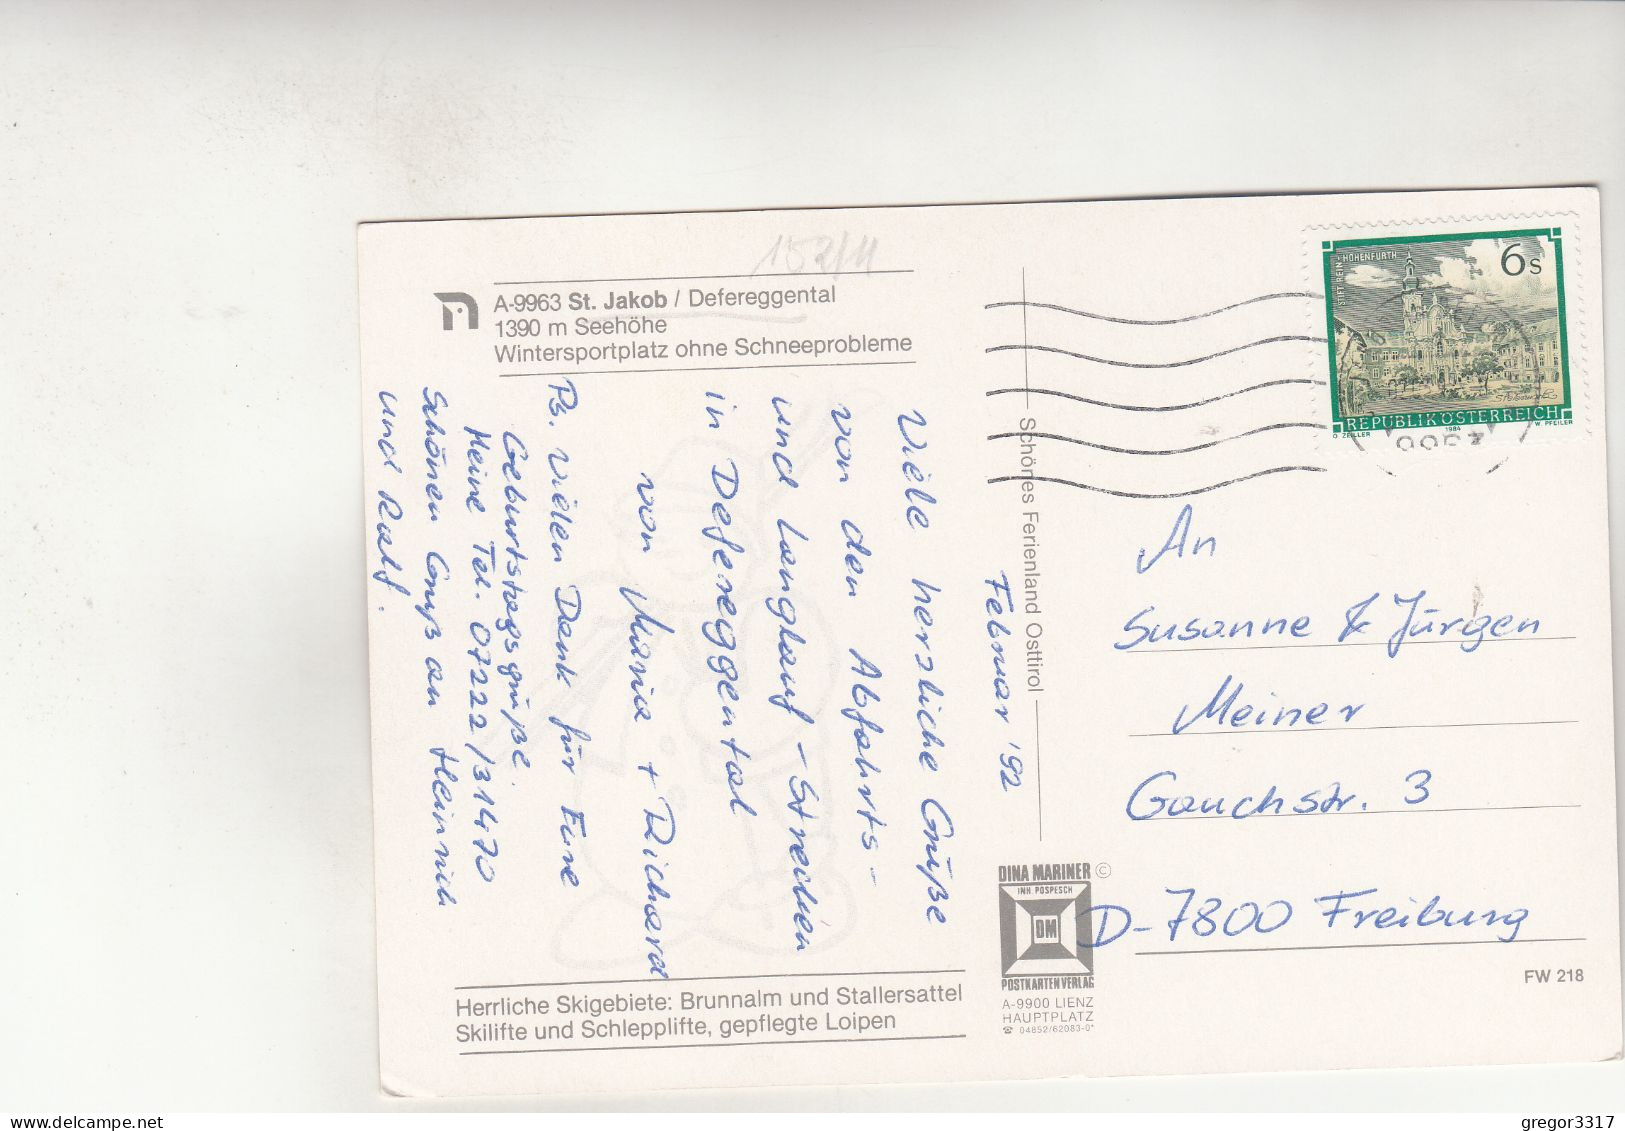 152/11
A-9963 St. Jakob / Defereggental
1390 m Seehöhe
Wintersportplatz ohne Schneeprobleme
Februar '92
Viele herzliche Grüße
von den Abfahrts-
und Langlauf-Strecken
in Defereggental
von Maria + Richard
Ps. Vielen Dank für Eure
Geburtstagsgrüße.
Meine Tel. 07222/31470
Schönen Gruß an Heinrich
und Ralf.
Herrliche Skigebiete: Brunnalm und Stallersattel
Skilifte und Schlepplifte, gepflegte Loipen
Schönes Ferienland Osttirol
DINA MARINER ©
INH. POSPESCH
DM
POSTKARTENVERLAG
A-9900 LIENZ
HAUPTPLATZ
☎ 04852/62083-0*
STIFT REIN-HOHENFURTH
6s
REPUBLIK ÖSTERREICH
O. ZEILLER 1984 W. PFEILER
9963
An
Susanne & Jürgen
Meiner
Gauchstr. 3
D-7800 Freiburg
FW 218
gregor3317